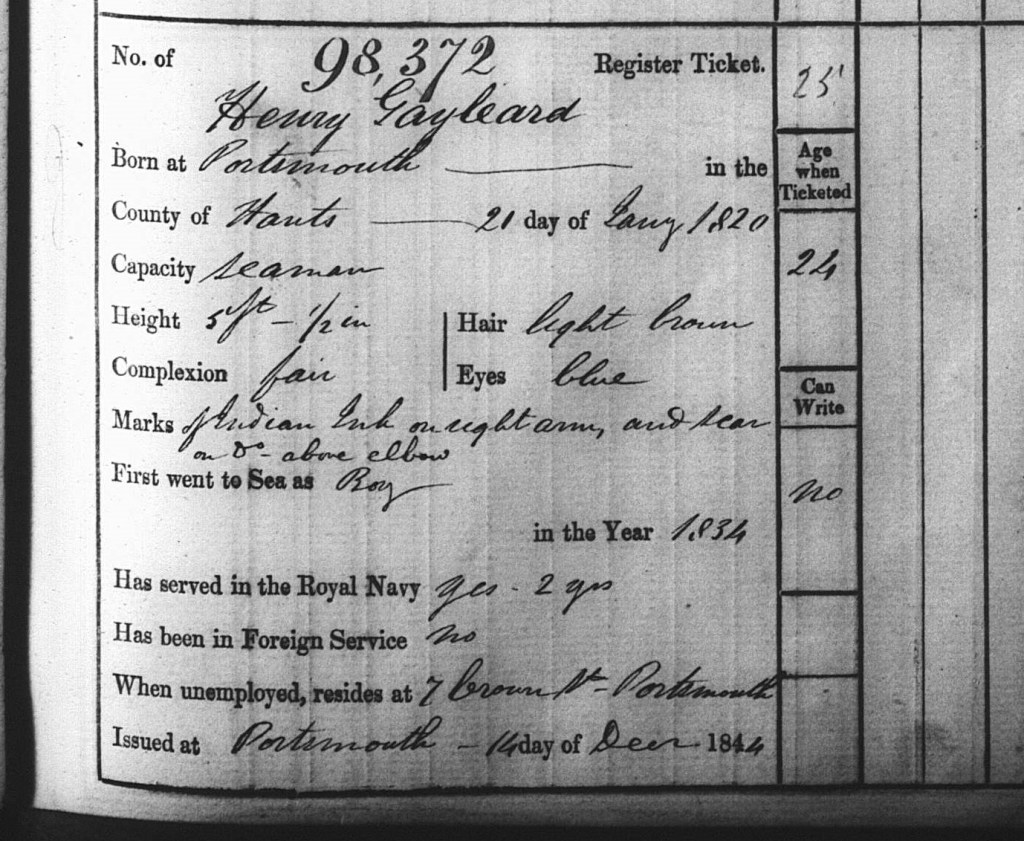 No. of 98,372 Register Ticket.
25
Henry Gayleard
Born at Portsmouth in the
Age
when
Ticketed
County of Hants 21 day of Jany 1820
Capacity seaman
24
Height 5 ft - 1/2 in Hair light brown
Complexion fair Eyes blue
Can
Write
Marks Indian Ink on right arm, and scar
on Do - above elbow
First went to Sea as Boy
no
in the Year 1834
Has served in the Royal Navy yes - 2 yrs
Has been in Foreign Service no
When unemployed, resides at 7 Crown St - Portsmouth
Issued at Portsmouth - 14 day of Decr 1844